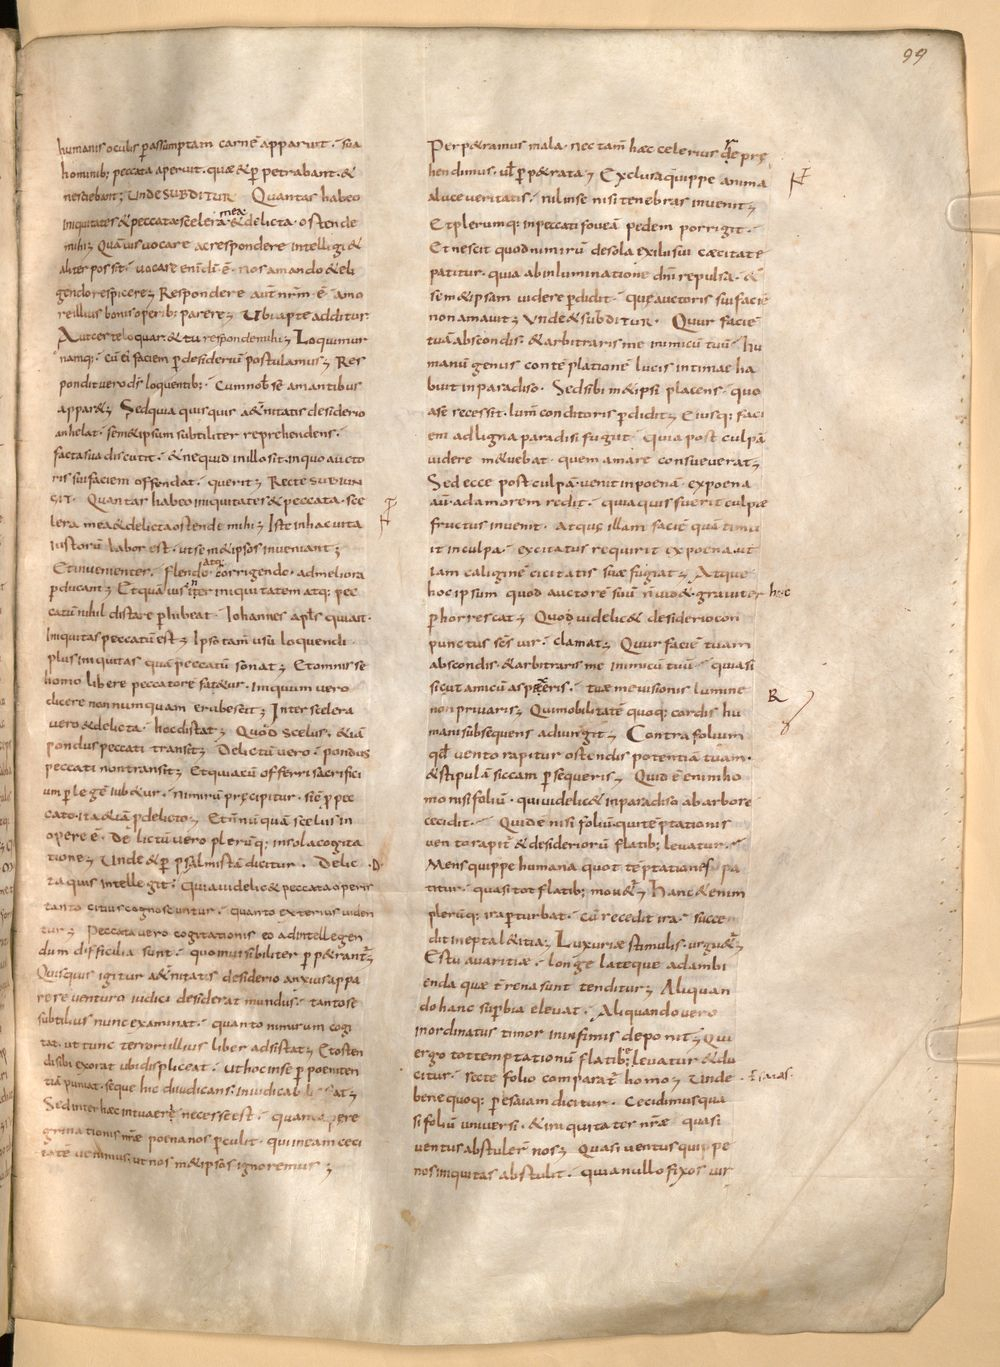 99
humanis oculis p assumptam carnē apparuit· sua
hominib; peccata aperuit· quae & p petrabant· &
nesciebant; UNDE SUBDITUR Quantas habeo
iniquitates & peccata scelera mea & delicta· ostende
mihi; Quamuis uocare ac respondere intellegi &
aliter possit· uocare enim dī ē· nos amando & eli
gendo respicere; Respondere aut nrm ē· amo
ri illius bonis operib; parere; Ubi apte additur·
Aut certe loquar· & tu responde mihi; Loquimur
namq; cū ei faciem p desideriū postulamus; Res
pondit uero ds loquentib;· cum nob se amantibus
appar&; Sed quia quisquis aeternitatis desiderio
anhelat· sem&ipsum subtiliter reprehendens·
facta sua discutit· & ne quid in illo sit· in quo aucto
ris sui faciem offendat· querit; RECTE SUBIUN
GIT· Quantas habeo iniquitates & peccata· sce
lera mea & delicta ostende mihi; Iste in hac uita
iustorū labor est· ut sem&ipsos inueniant;
Et inuenientes· flendo atq; corrigendo· ad meliora
pducant; Et quamuis inter iniquitatem atq; pec
catū nihil distare phibeat· Iohannes apls qui ait·
Iniquitas peccatū est; Ipso tam usu loquendi
plus iniquitas quā peccatū sonat; Et omnis se
homo libere peccatorē fat&ur· iniquum uero
dicere non numquam erubescit; Inter scelera
uero & delicta· hoc distat; Quod scelus· &iā
pondus peccati transit; Delictū uero· pondus
peccati non transit; Et quia cū offerri sacrifici
um p legē iub&ur· nimirū precipitur· sic p pec
cato· ita &iā p delicto; Et nūquā scelus in
opere ē· Delictū uero plerūq; in sola cogita
tione; Unde & p psalmistā dicitur· Delic
ta quis intellegit· quia uidelic& peccata operis
tanto citius cognoscuntur· quanto exterius uiden
tur; Peccata uero cogitationis eo ad intellegen
dum difficilia sunt· quo inuisibiliter p p&rant;
Quisquis igitur aeternitatis desiderio anxius appa
rere uenturo iudici desiderat mundus· tanto se
subtilius nunc examinat· quanto nimirum cogi
tat· ut tunc terrori illius liber adsistat; Et osten
di sibi exorat ubi displiceat· ut hoc in se p poeniten
tiā puniat· seque hic diiudicans· iniudicab
Sed inter haec intuaer necesse est· quanta pere
grinationis nrae poena nos pculit· qui in eam ceci
tate uenimus· ut nos m&ipsos ignoremus;
D·
Perp&ramus mala· nec tam haec celerius depre
hendimus· ul p p&rata; Exclusa quippe anima
a luce ueritatis· nil in se nisi tenebras inuenit;
Et plerumq; in peccati foueā pedem porrigit·
Et nescit quod nimirū de sola exilii sui caecitate
patitur· quia ab inluminatione dni repulsa· &
sem&ipsam uidere pdidit· quę auctoris sui faciē
non amauit; Unde & SUBDITUR· Quur faciē
tuā abscondis· & arbitraris me inimicū tuū· hu
manū genus contēplationē lucis intimae ha
buit in paradiso· Sed sibi m&ipsi placens· quo
a se recessit· lum conditoris pdidit; Eiusq; faci
em ad ligna paradisi fugiit· quia post culpā
uidere m&uebat· quem amare consueuerat;
Sed ecce post culpā· uenit in poenā· ex poena
aū· ad amorem redit· quia quis fuerit culpae
fructus inuenit· atquę illam faciē quā timu
it in culpa· excitatus requirit ex poena· ut
iam caliginē cicitatis suae fugiat; Atque
hoc ipsum quod auctorē suū n uid& grauiter
phorrescat; Quod uidelic& desiderio con
punctus scs uir· clamat; Quur faciē tuam
abscondis· & arbitraris me inimicū tuū· quia si
sicut amicū aspiceris· tuae me uisionis lumine
non priuaris; Qui mobilitatē quoq; cordis hu
mani subsequens adiungit; Contra folium
qd uento rapitur ostendis potentiā tuam·
& stipulā siccam psequeris; Quid ē enim ho
mo nisi foliū· qui uidelic& in paradiso ab arbore
cecidit· Quid ē nisi foliū· qui tēptationis
uento rapit & desideriorū flatib; leuatur·
Mens quippe humana quot tēptationes pa
titur· quasi tot flatib; mou&; Hanc &enim
plerūq; ira pturbat· cū recedit ira· succe
dit inepta l&itia; Luxuriae stimulis urgu&;
Estu auaritiae· longe lateque ad ambi
enda quae terrena sunt tenditur; Aliquan
do hanc supbia eleuat· Aliquando uero
inordinatus timor in infimis deponit; Qui
ergo tot temptationū flatib; leuatur & du
citur· recte folio comparat homo; Unde
bene quoq; p esaiam dicitur· Cecidimus qua
si foliū uniuersi· & iniquitates nrae quasi
uentus abstuler nos; Quasi uentus quippe
nos iniquitas abstulit· quia nullo fixos uir
hęc
R